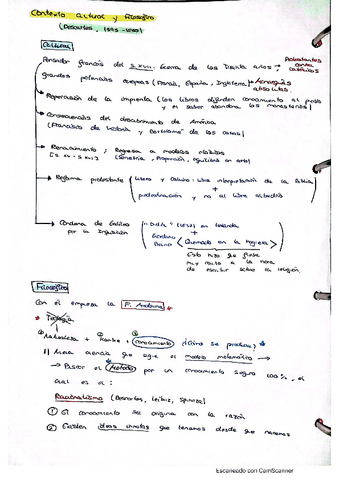 Contexto cultural y filosófico
(Descartes, 1596-1650)
Cultural
Pensador francés del S.XVII. Guerra de los Treinta años → Protestantes contra católicos
grandes potencias europeas (Francia, España, Inglaterra) → Monarquías absolutas.
→ Reparación de la imprenta (los libros difunden conocimiento al pueblo
y el saber abandona los monasterios)
→ Consecuencias del descubrimiento de América
(Francisco de Vitoria y Bartolomé de las Casas)
→ Renacimiento; Regreso a modelos clásicos
(S. XV - S XVI) (Simetría, Proporción, equilibrio en arte)
→ Reforma protestante (Lutero y Calvino: libre interpretación de la Biblia
+
predestinación y no al libre albedrío)
→ Condena de Galileo por la Inquisición
+
Giordano Bruno < Quemado en la hoguera >
Esto hizo que fuese
muy cauto a la hora
de escribir sobre la religión.
Filosófico
Con él empieza la F. Moderna *
* Teología
Naturaleza + Hombre + conocimiento ¿Cómo se produce?
Nueva ciencia que sigue el modelo matemático →
→ Pasar el Método por un conocimiento seguro 100%, el
cual es el:
Racionalismo (Descartes, Leibniz, Spinoza)
① El conocimiento se origina con la razón
② Existen ideas innatas que tenemos desde que nacemos
Escaneado con CamScanner